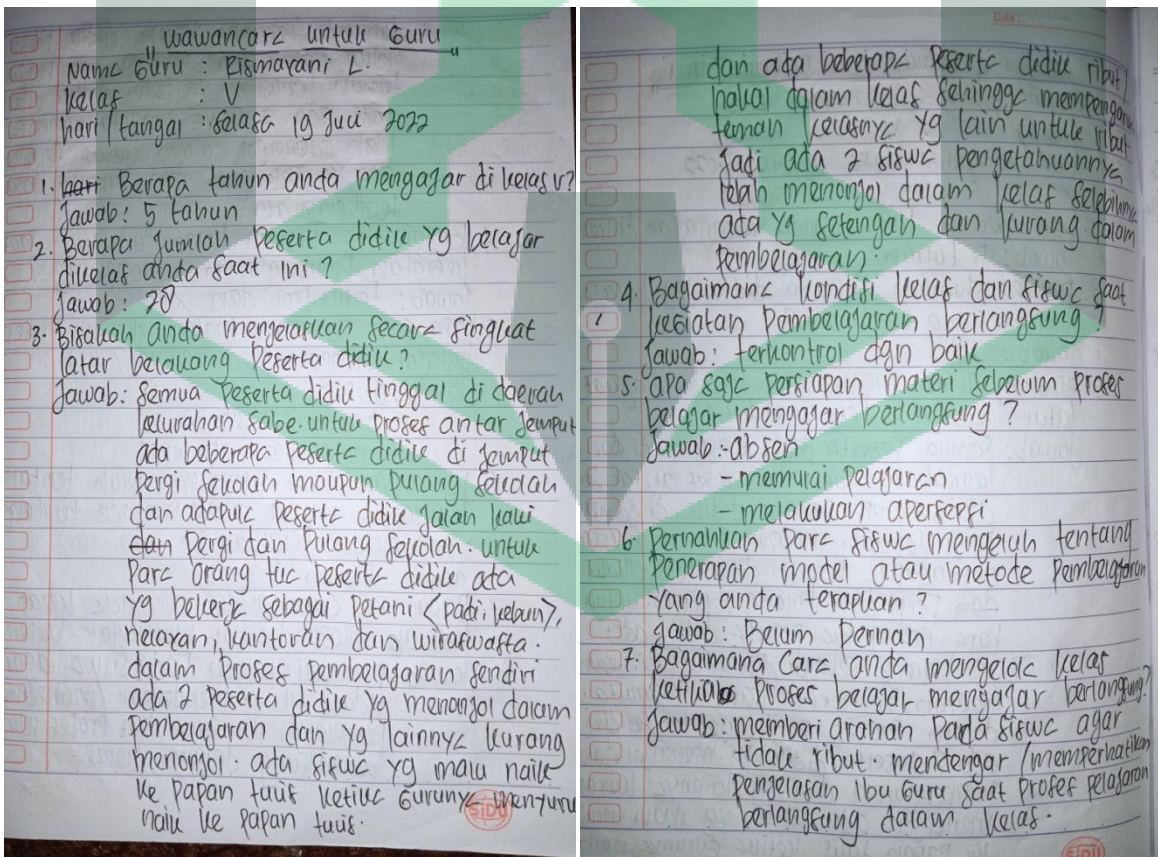 "Wawancara untuk Guru"
Nama Guru : Rismayani L.
Kelas : V
hari/tangal : Selasa 19 Juli 2022
1. hari Berapa tahun anda mengajar di kelas V?
Jawab : 5 tahun
2. Berapa jumlah Peserta didik yg belajar
dikelas anda saat ini ?
Jawab : 20
3. Bisakah anda menjelaskan secara singkat
latar belakang Peserta didik ?
Jawab : Semua Peserta didik tinggal di daerah
kelurahan Sabe. untuk proses antar jemput
ada beberapa peserta didik di jemput
Pergi Sekolah maupun pulang sekolah
dan adapula peserta didik jalan kaki
dan Pergi dan Pulang sekolah. untuk
Para orang tua peserta didik ada
yg bekerja sebagai petani (padi, kebun),
nelayan, kantoran dan wiraswasta.
dalam proses pembelajaran sendiri
ada 2 Peserta didik yg menonjol dalam
Pembelajaran dan yg lainnya kurang
menonjol. ada siswa yg malu naik
ke papan tulis ketika gurunya menyuru
naik ke papan tulis.
SIDU
Date :
dan ada beberapa Peserta didik ribut/
nakal dalam kelas sehingga mempengaru
teman kelasnya yg lain untuk ribut
Jadi ada 2 siswa pengetahuannya
lebih menonjol dalam kelas selebihnya
ada yg setengah dan kurang dalam
Pembelajaran.
4. Bagaimana kondisi kelas dan siswa saat
kegiatan Pembelajaran berlangsung ?
Jawab : terkontrol dgn baik
5. apa saja persiapan materi sebelum proses
belajar mengajar berlangsung ?
Jawab : - absen
- memulai pelajaran
- melakukan apersepsi
6. Pernahkan para siswa mengeluh tentang
Penerapan model atau metode pembelajaran
yang anda terapkan ?
Jawab : Belum Pernah
7. Bagaimana cara anda mengelola kelas
ketika proses belajar mengajar berlangsung?
Jawab : memberi arahan pada siswa agar
tidak ribut. mendengar/memperhatikan
penjelasan ibu guru saat proses pelajaran
berlangsung dalam kelas.
SIDU